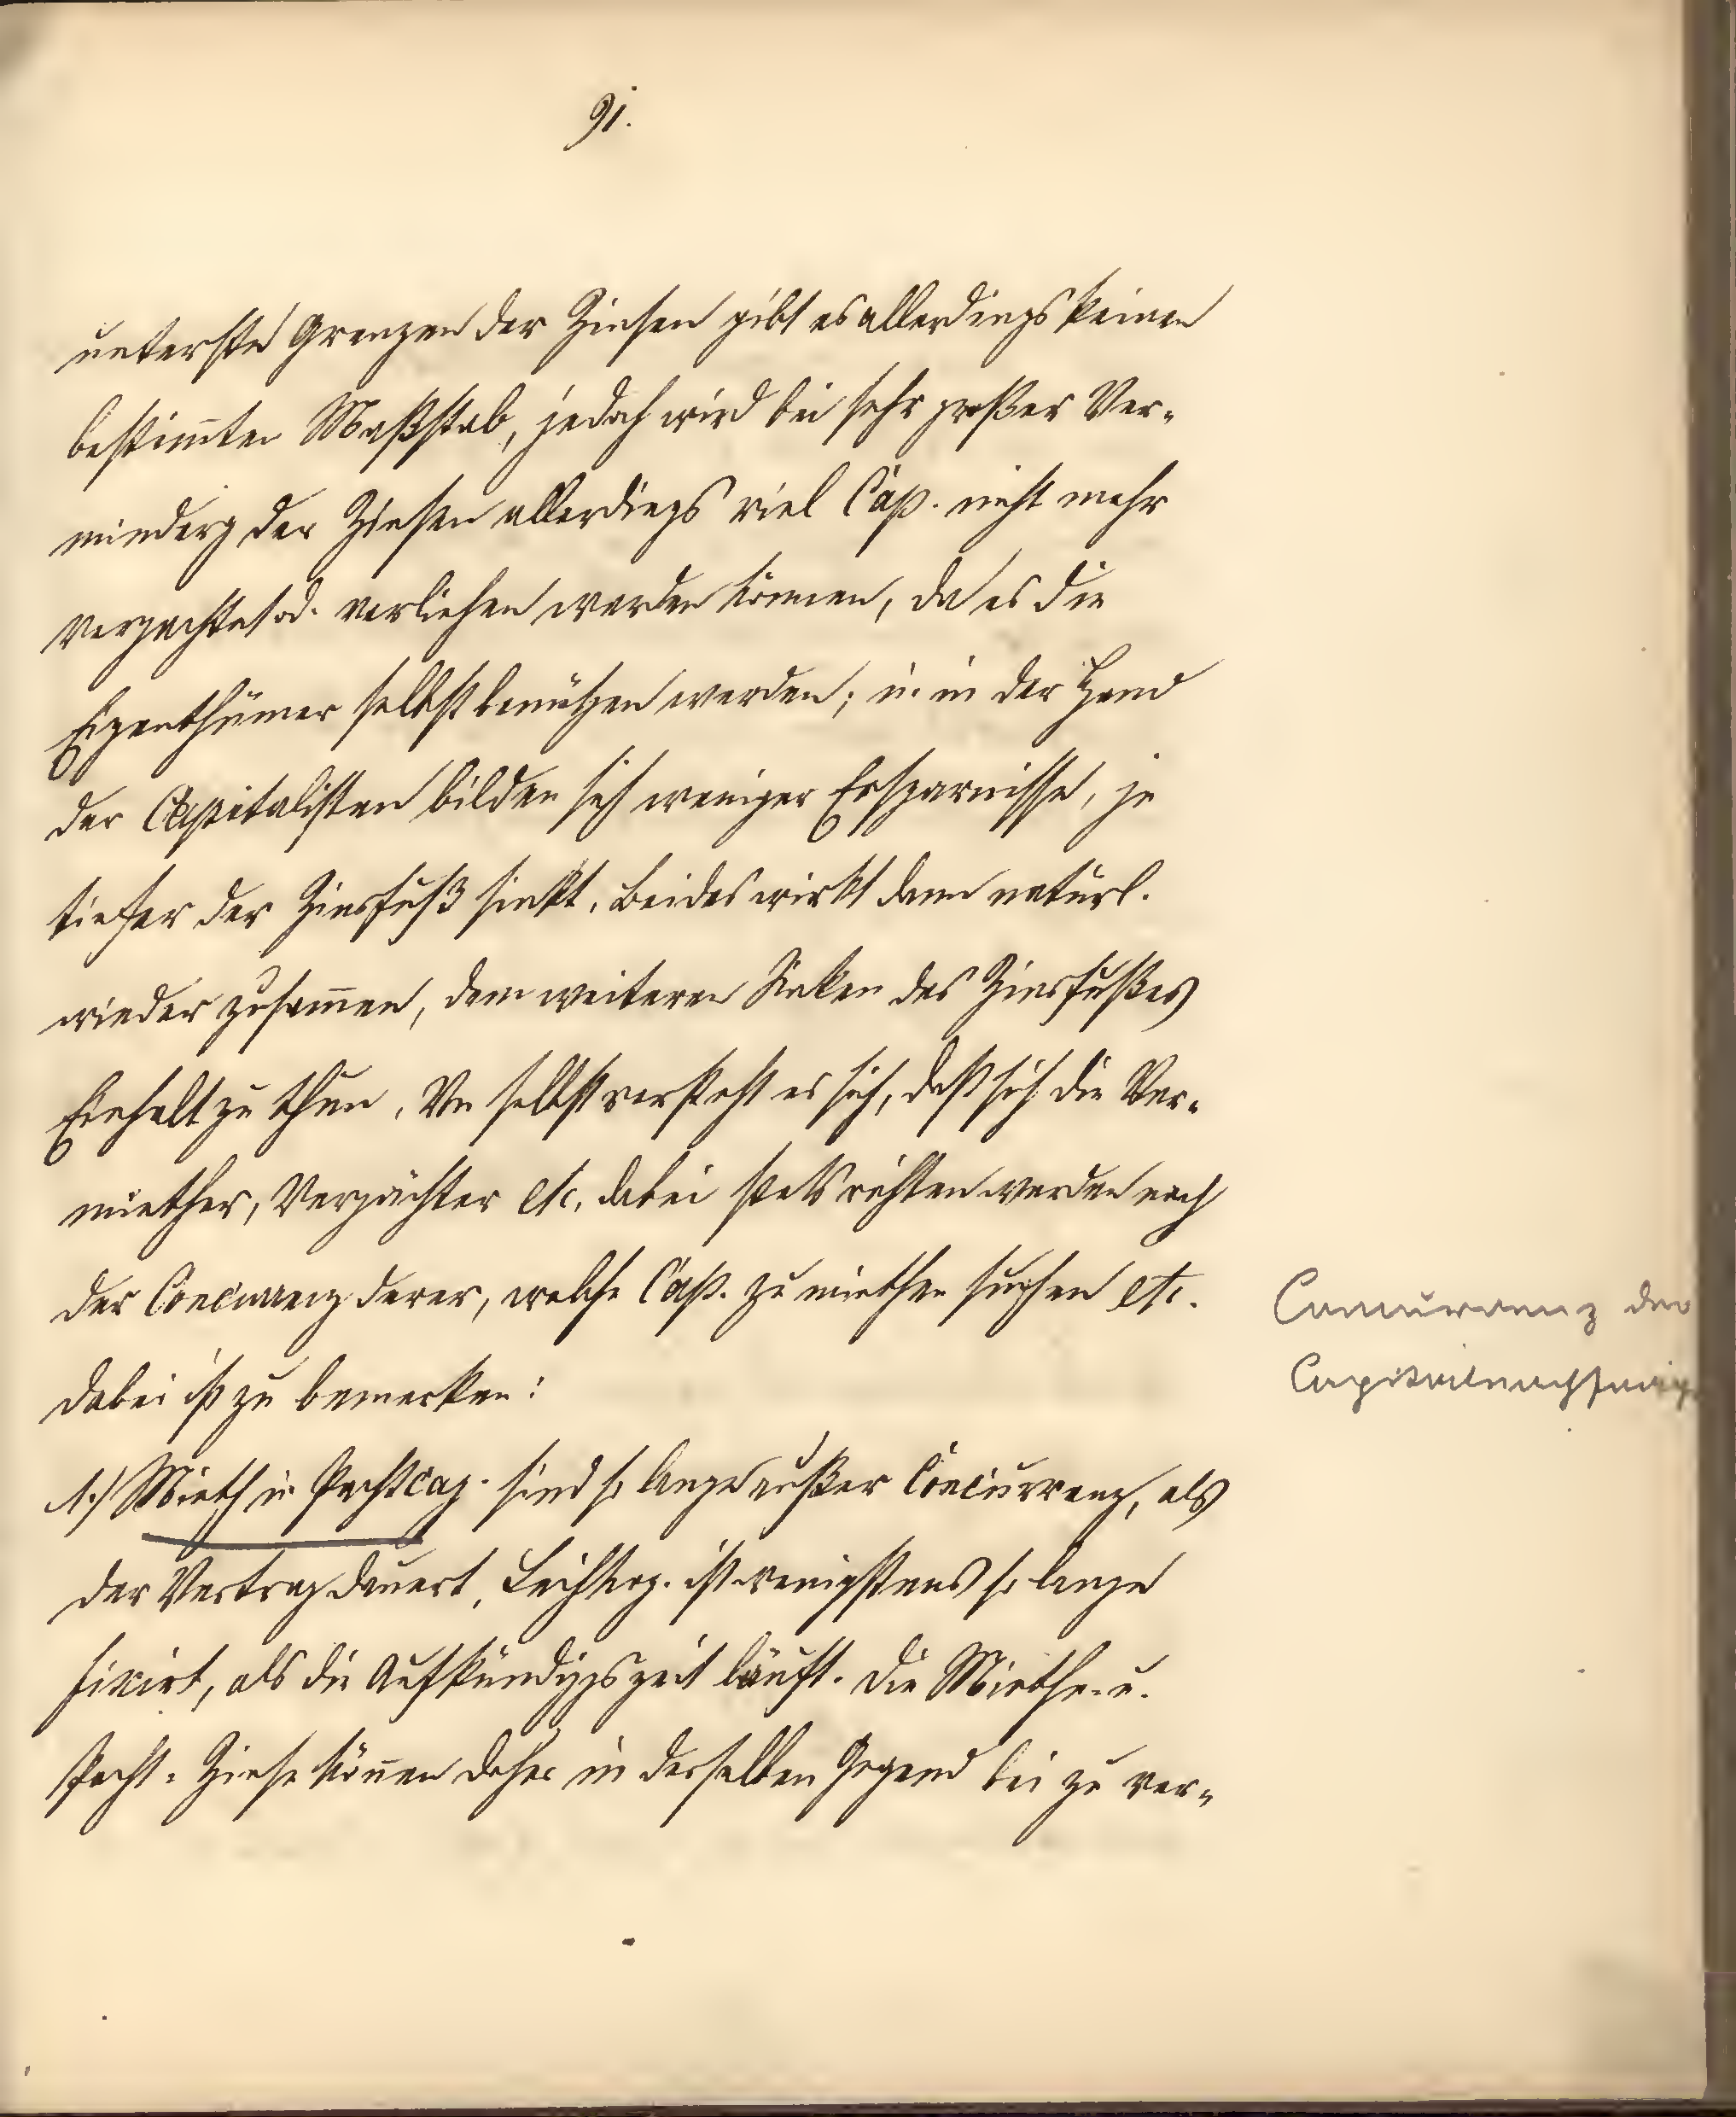 91.
unterste Grenzen der Zinsen gibt es allerdings keinen
bestim̅ten Maßstab, jedoch wird bei sehr großer Ver-
minderg der Zinsen allerdings viel Cap. nicht mehr
verpachtet od. verliehen werden können, da es die
Eigenthümer selbst benützen werden; u. in der Hand
der Capitalisten bilden sich weniger Ersparnisse, je
tiefer der Zinsfuß sinkt. Beides wirkt dann natürl.
wieder zusam̅en, dem weiteren Sinken des Zinsfußes
Einhalt zu thun. Von selbst versteht es sich, daß sich die Ver-
miether, Verpächter etc. dabei stets richten werden nach
der Concurrenz derer, welche Cap. zu miethen suchen etc.
Concurrenz der
dabei ist zu bemerken:
1.) Mieth u. Pachtcap. sind so lange außer Concurrenz, als
der Vertrag dauert, ist wenigstens so lange
fixirt, als die Aufkündiggszeit läuft. Die Mieth- u.
Pacht-Zinse kön̅en daher in derselben Gegend bei zu ver-